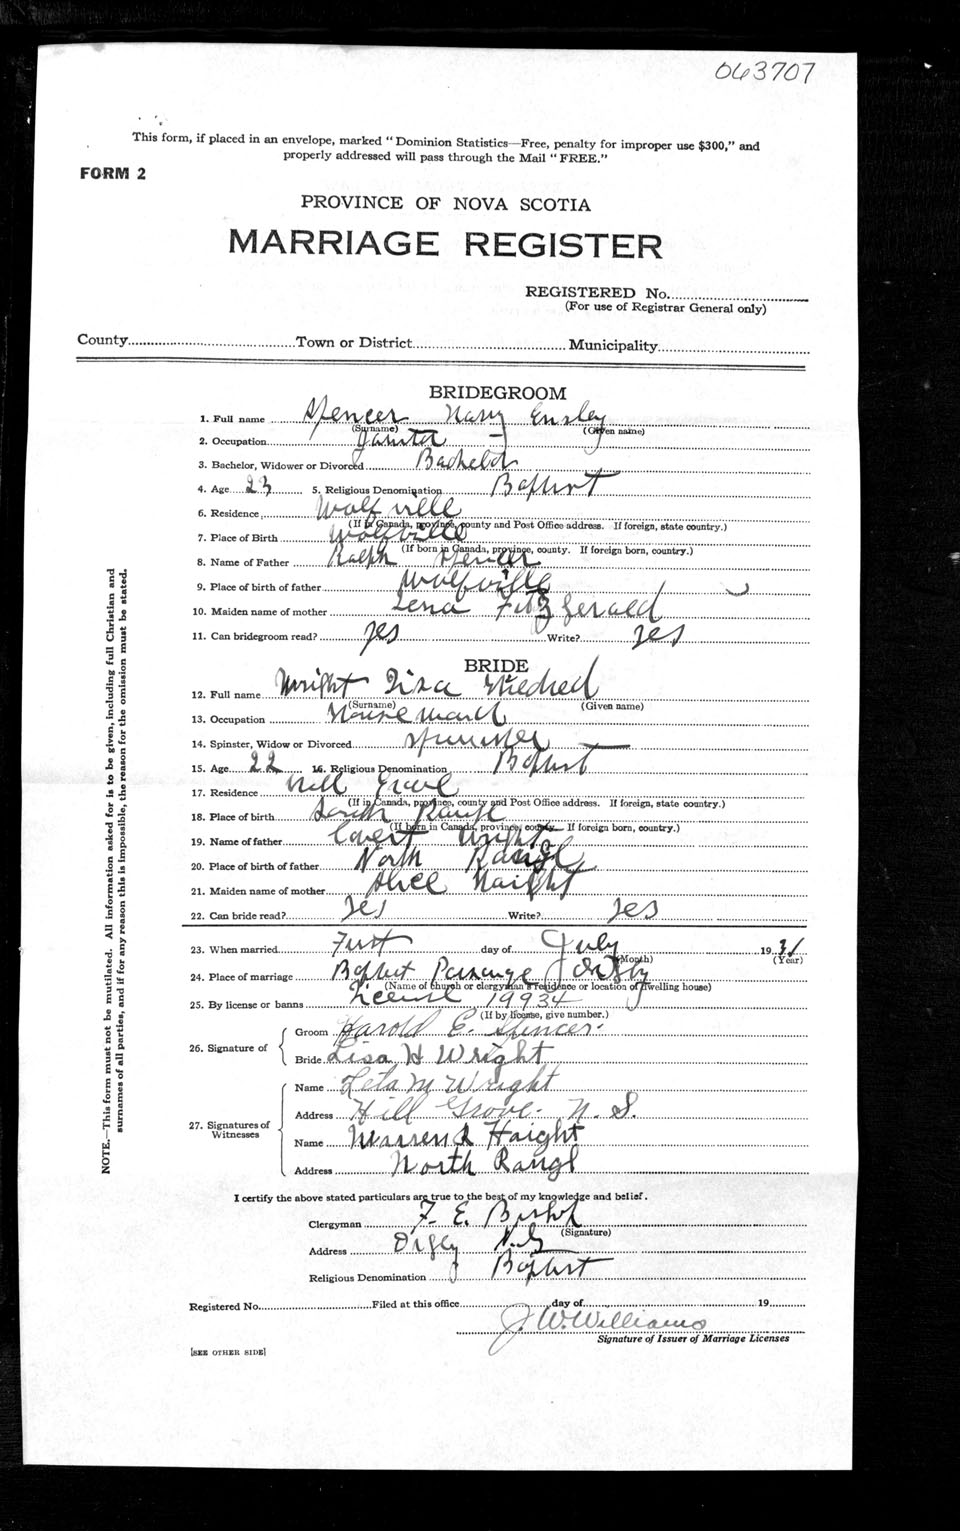 063707
This form, if placed in an envelope, marked "Dominion Statistics—Free, penalty for improper use $300," and
properly addressed will pass through the Mail "FREE."
FORM 2
PROVINCE OF NOVA SCOTIA
MARRIAGE REGISTER
REGISTERED No.
(For use of Registrar General only)
County Town or District Municipality
BRIDEGROOM
1. Full name Spencer Ensley
(Surname) (Given name)
2. Occupation Janitor
3. Bachelor, Widower or Divorced Bachelor
4. Age 23 5. Religious Denomination Baptist
6. Residence Wolfville
(If in Canada, province, county and Post Office address. If foreign, state country.)
7. Place of Birth Wolfville
(If born in Canada, province, county. If foreign born, country.)
8. Name of Father Ralph Spencer
9. Place of birth of father Wolfville
10. Maiden name of mother Lena Fitzgerald
11. Can bridegroom read? yes Write? yes
BRIDE
12. Full name Wright Liza Mildred
(Surname) (Given name)
13. Occupation Housemaid
14. Spinster, Widow or Divorced Spinster
15. Age 22 16. Religious Denomination Baptist
17. Residence Hill Grove
(If in Canada, province, county and Post Office address. If foreign, state country.)
18. Place of birth South Range
(If born in Canada, province, county. If foreign born, country.)
19. Name of father Covert Wright
20. Place of birth of father North Range
21. Maiden name of mother Alice Haight
22. Can bride read? yes Write? yes
23. When married First day of July 1931
(Month) (Year)
24. Place of marriage Baptist Parsonage Digby
(Name of church or clergyman's residence or location of dwelling house)
25. By license or banns License 19934
(If by license, give number.)
26. Signature of
Groom Harold E. Spencer.
Bride Lisa H Wright
27. Signatures of Witnesses
Name Leta M Wright
Address Hill Grove. N. S.
Name Warren R Haight
Address North Rangl
I certify the above stated particulars are true to the best of my knowledge and belief.
Clergyman F. E. Bishop
(Signature)
Address Digby N.S
Religious Denomination Baptist
Registered No. Filed at this office day of 19
J. W. Williams
Signature of Issuer of Marriage Licenses
[SEE OTHER SIDE]
NOTE.—This form must not be mutilated. All information asked for is to be given, including full Christian and
surnames of all parties, and if for any reason this is impossible, the reason for the omission must be stated.